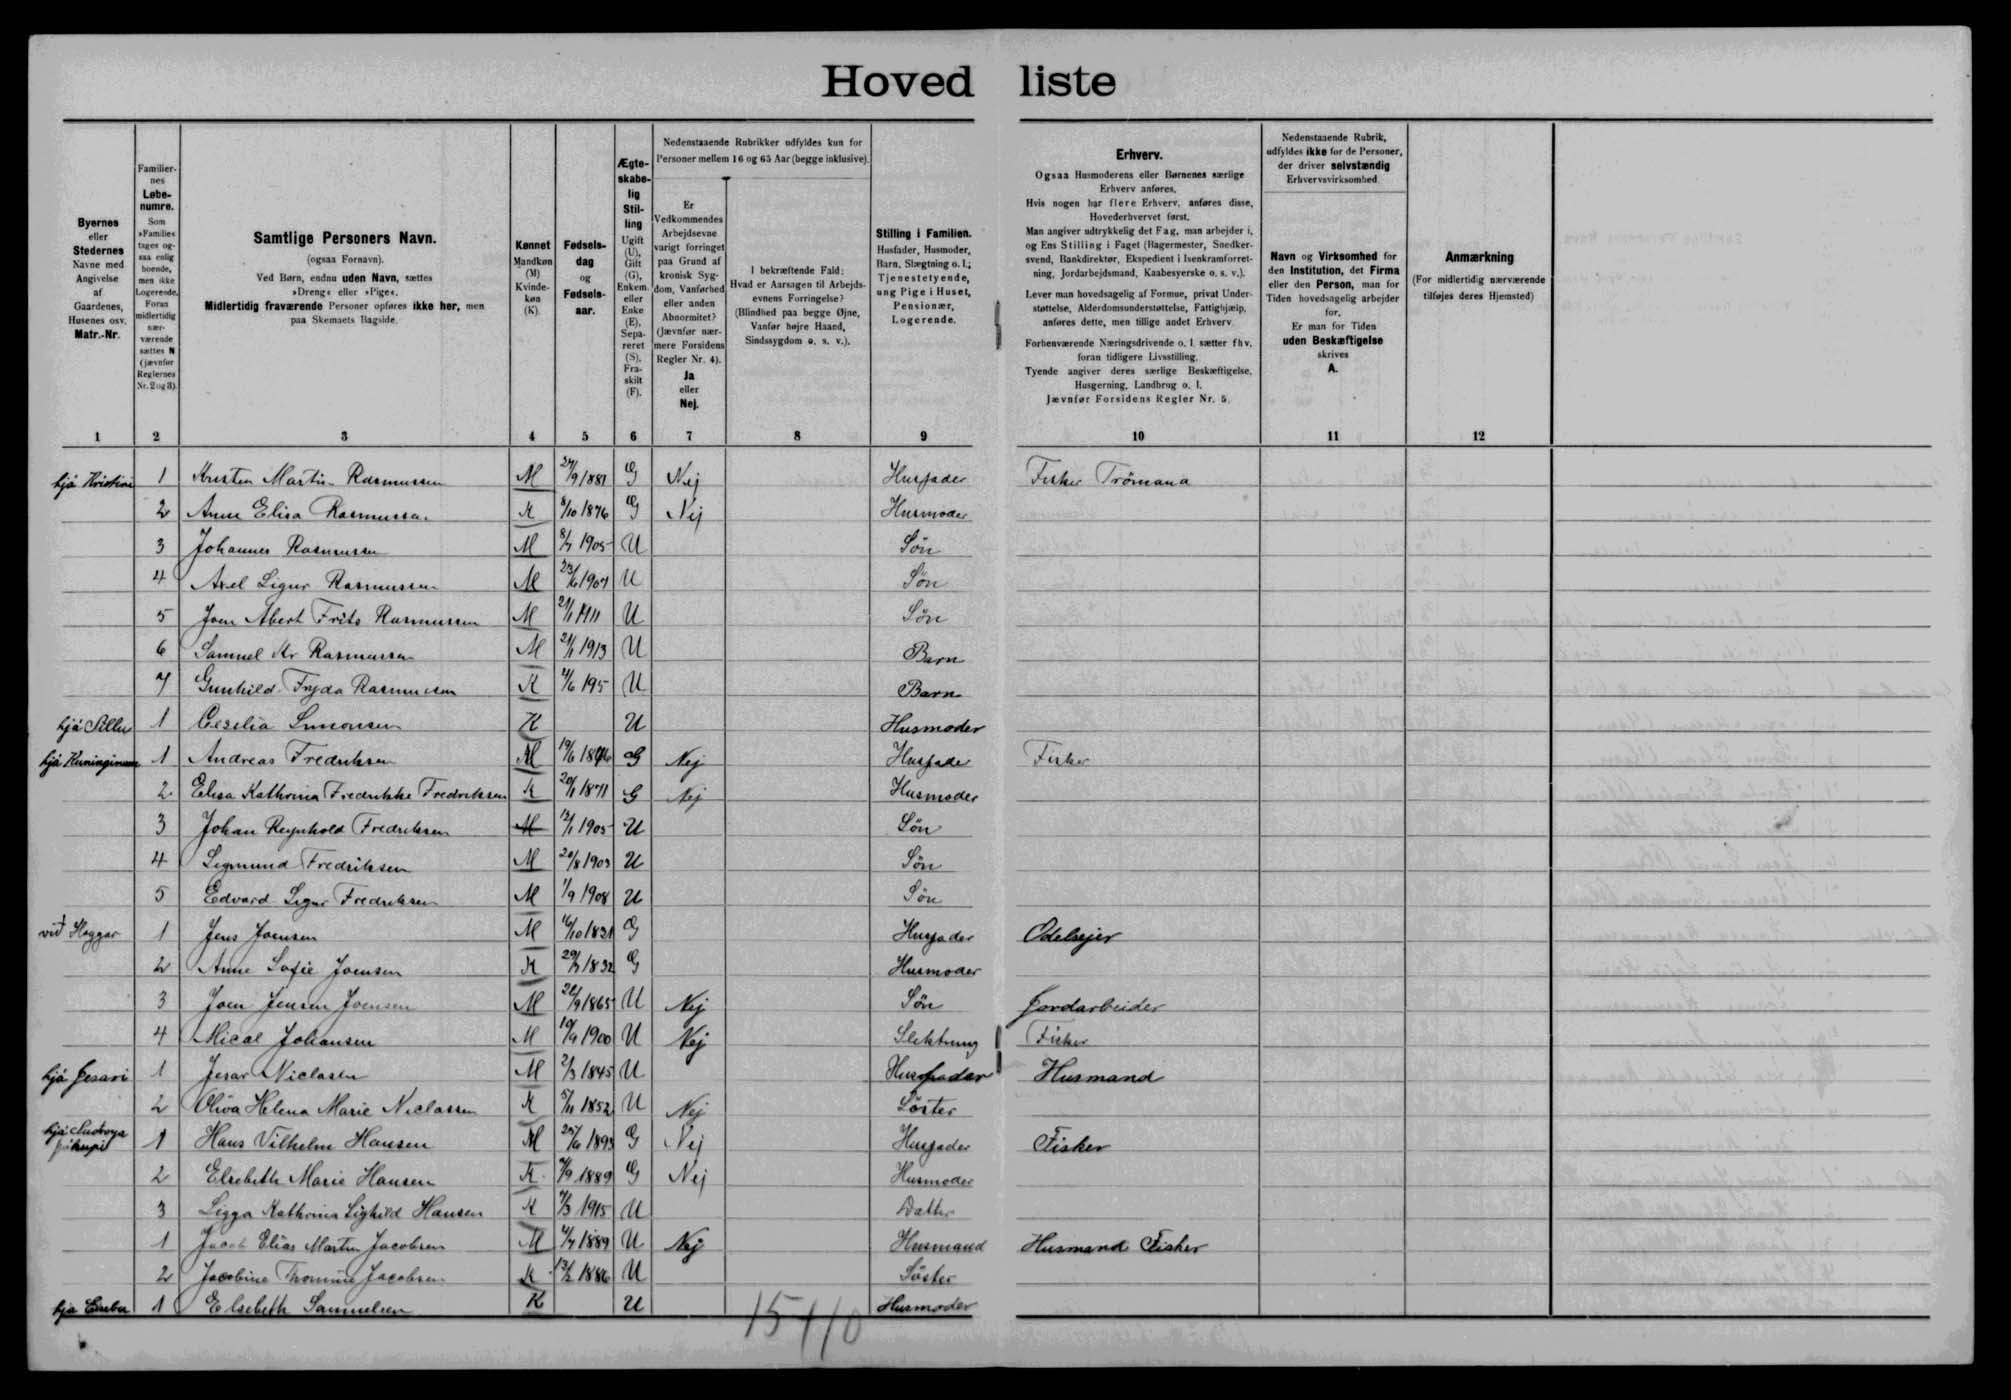 Hoved liste
Byernes
eller
Stedernes
Navne med
Angivelse
af
Gaardenes,
Husenes osv.
Matr.-Nr.
Familier-
nes
Løbe-
numre.
Som
»Familie«
tages og-
saa enlig
boende,
men ikke
Logerende.
Foran
midlertidig
nær-
værende
sættes N
(jævnfør
Reglernes
Nr. 2 og 3).
Samtlige Personers Navn.
(ogsaa Fornavn).
Ved Børn, endnu uden Navn, sættes
»Dreng« eller »Pige«.
Midlertidig fraværende Personer opføres ikke her, men
paa Skemaets Bagside.
Kønnet
Mandkøn
(M)
Kvinde-
køn
(K).
Fødsels-
dag
og
Fødsels-
aar.
Ægte-
skabe-
lig
Stil-
ling
Ugift
(U),
Gift
(G),
Enkem.
eller
Enke
(E),
Sepa-
reret
(S),
Fra-
skilt
(F).
Nedenstaaende Rubrikker udfyldes kun for
Personer mellem 16 og 65 Aar (begge inklusive).
Er
Vedkommendes
Arbejdsevne
varigt forringet
paa Grund af
kronisk Syg-
dom, Vanførhed
eller anden
Abnormitet?
(Jævnfør nær-
mere Forsidens
Regler Nr. 4).
Ja
eller
Nej.
I bekræftende Fald:
Hvad er Aarsagen til Arbejds-
evnens Forringelse?
(Blindhed paa begge Øjne,
Vanfør højre Haand,
Sindssygdom o. s. v.).
Stilling i Familien.
Husfader, Husmoder,
Barn, Slægtning o. l.;
Tjenestetyende,
ung Pige i Huset,
Pensionær,
Logerende.
Erhverv.
Ogsaa Husmoderens eller Børnenes særlige
Erhverv anføres.
Hvis nogen har flere Erhverv, anføres disse,
Hovederhvervet først.
Man angiver udtrykkelig det Fag, man arbejder i,
og Ens Stilling i Faget (Bagermester, Snedker-
svend, Bankdirektør, Ekspedient i Isenkramforret-
ning, Jordarbejdsmand, Kaabesyerske o. s. v.).
Lever man hovedsagelig af Formue, privat Under-
støttelse, Alderdomsunderstøttelse, Fattighjælp,
anføres dette, men tillige andet Erhverv.
Forhenværende Næringsdrivende o. l. sætter fhv.
foran tidligere Livsstilling.
Tyende angiver deres særlige Beskæftigelse,
Husgerning, Landbrug o. l.
Jævnfør Forsidens Regler Nr. 5.
Nedenstaaende Rubrik,
udfyldes ikke for de Personer,
der driver selvstændig
Erhvervsvirksomhed.
Navn og Virksomhed for
den Institution, det Firma
eller den Person, man for
Tiden hovedsagelig arbejder
for.
Er man for Tiden
uden Beskæftigelse
skrives
A.
Anmærkning
(For midlertidig nærværende
tilføjes deres Hjemsted)
1 2 3 4 5 6 7 8 9 10 11 12
hjá Kristini 1 Kristen Martin Rasmussen M 27/9 1881 G Nej Husfader Fisker Trömana
2 Anne Elisa Rasmussen K 8/10 1876 G Nej Husmoder
3 Johannes Rasmussen M 8/7 1905 U Sön
4 Axel Sigur Rasmussen M 23/6 1907 U Sön
5 Joen Abert Frits Rasmussen M 21/1 1911 U Sön
6 Samuel Kr Rasmussen M 21/1 1913 U Barn
7 Gunhild Fryda Rasmussen K 4/6 195 U Barn
hjá 1 Cesilia Simonsen K U Husmoder
hjá 1 Andreas Fredriksen M G Nej Husfader Fisker
2 Elisa Kathrina Fredrikke Fredriksen K 20/1 1871 G Nej Husmoder
3 Johan Reynhold Fredriksen M 12/1 1905 U Sön
4 Sigmund Fredriksen M 20/8 1903 U Sön
5 Edvard Sigur Fredriksen M 1/9 1908 U Sön
við Heggar 1 Jens Joensen M 16/10 1831 G Husfader Odelsejer
2 Anne Sofie Joensen K 1832 G Husmoder
3 Joen Jensen Joensen M 1865 U Nej Sön Jordarbeider
4 Mical Johansen M 10/9 1900 U Nej Slektning Fisker
hjá Jesari 1 Jesar Niclasen M 2/3 1845 U Husfader Husmand
2 Oliva Helena Marie Niclassen K 5/11 1852 U Nej Söster
hjá 1 Hans Vilhelm Hansen M 25/6 1893 G Nej Husfader Fisker
2 Elsebeth Marie Hansen K 1889 G Nej Husmoder
3 Sigga Kathrina Sighild Hansen K 1915 U Datter
1 Jacob Elias Martin Jacobsen M 4/7 1889 U Nej Husmand Husmand Fisker
2 Jacobine Thomine Jacobsen K 13/2 1886 U Söster
hjá 1 Elsebeth Samuelsen K U Husmoder
15+10